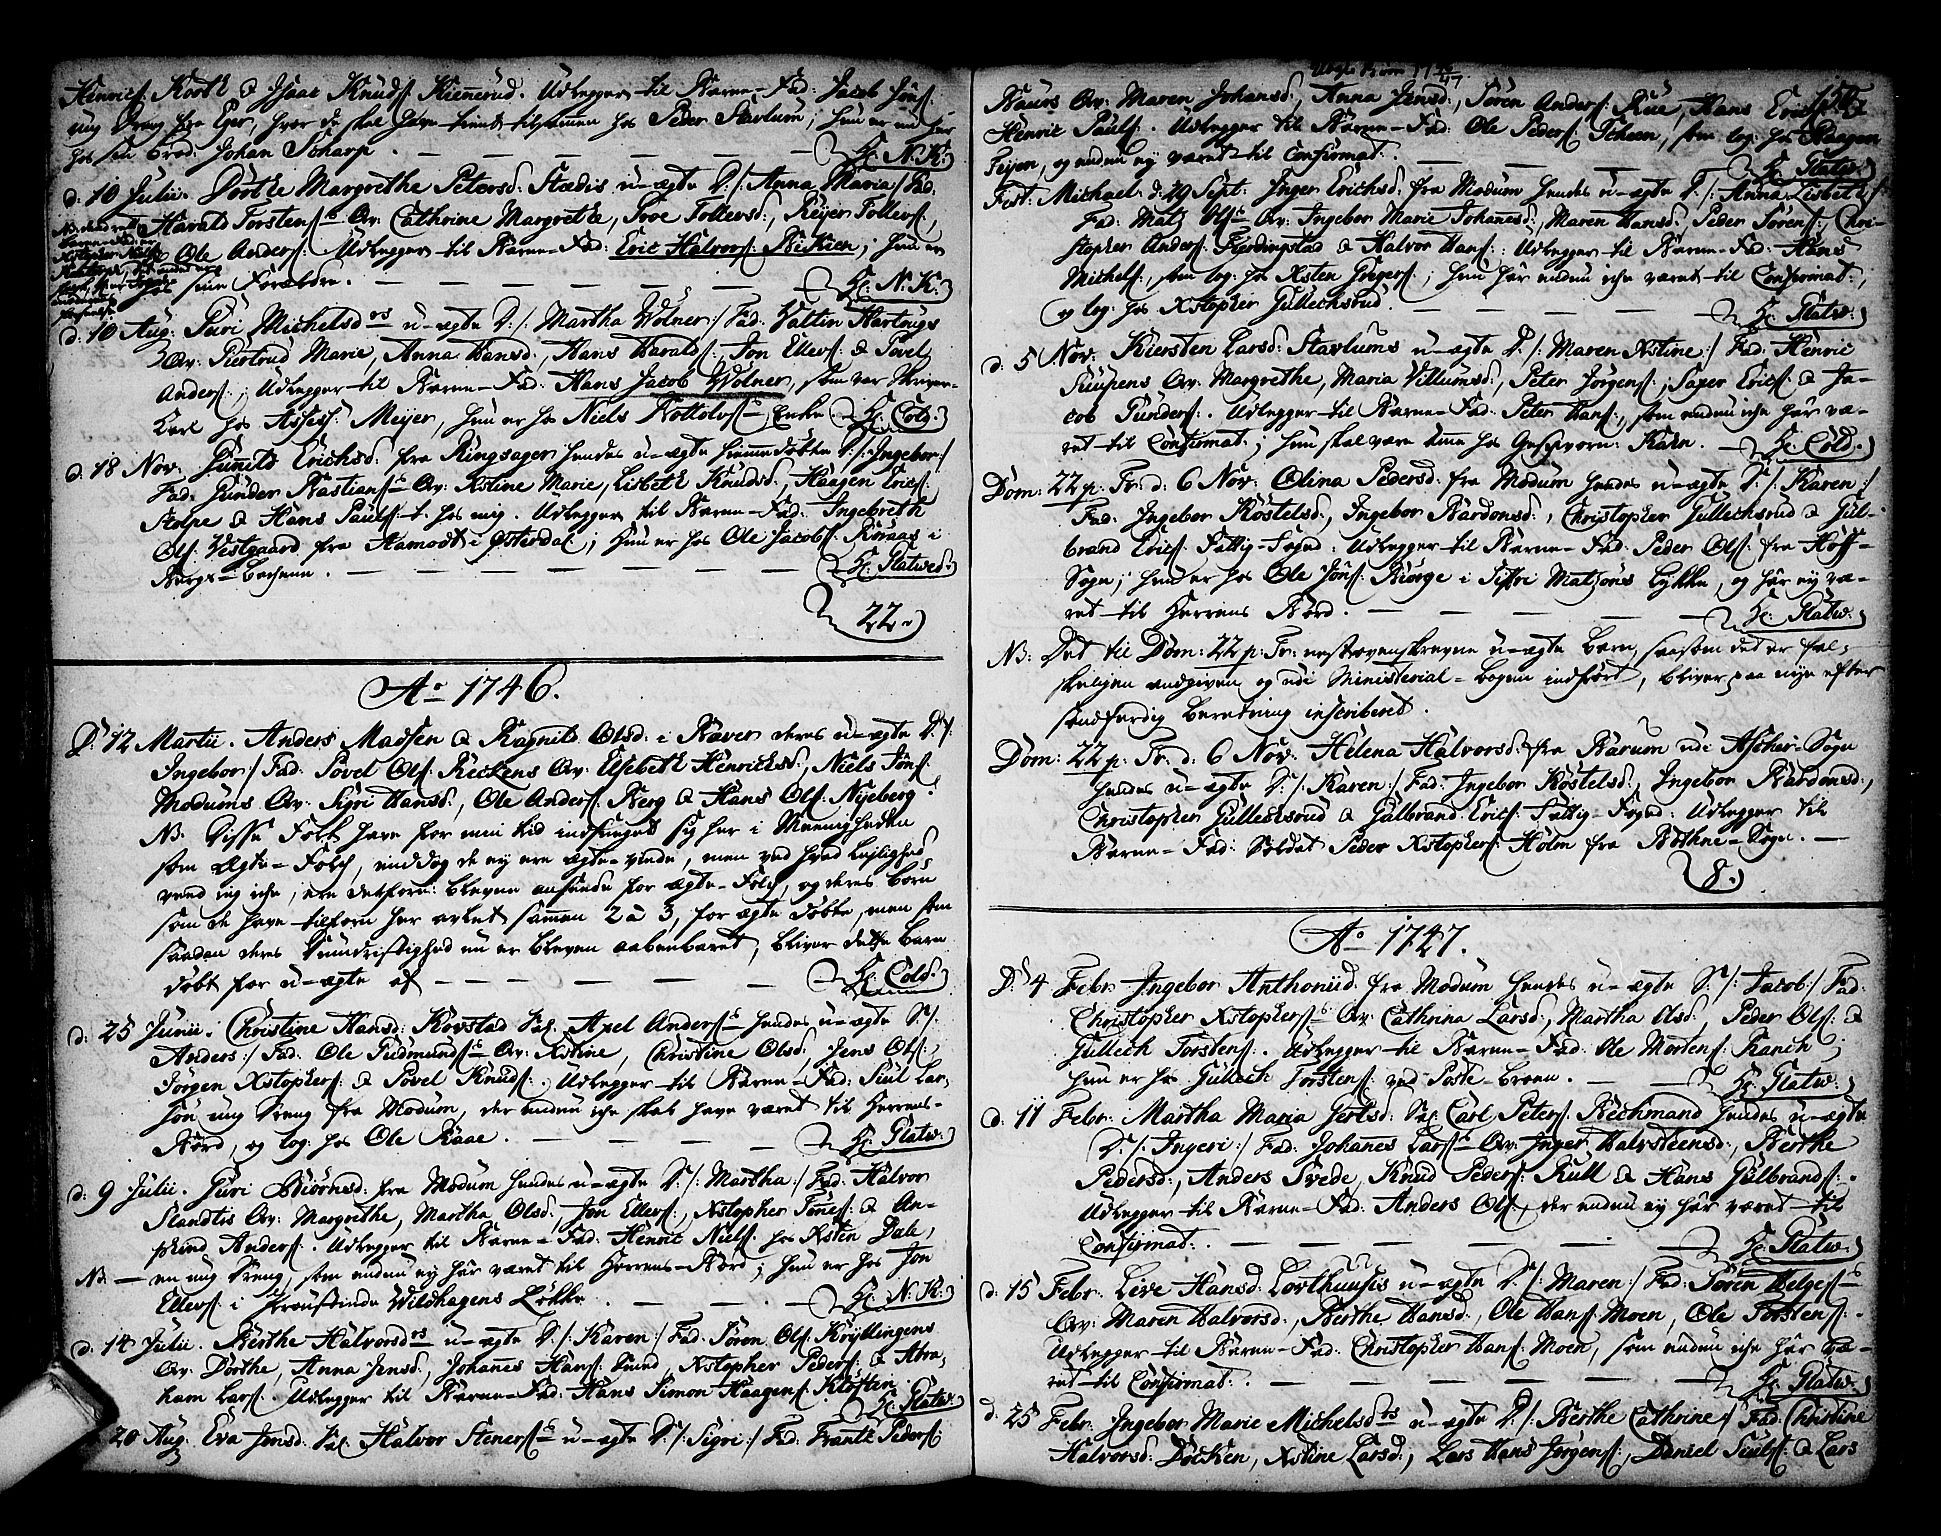 Henrics: Koett & Isaac Knuds: Kiennerud. Udlegger til Barne-Fad: Jacob Jøns:
ung Dreng fra Eger, hvor de skal have tient tilsammen hos Peder Stavlum; hun er nu her
hos sin Brod: Johan Scharp. — — — H: N. K:
d. 10 Julii. Dorthe Margrethe Petersd: Stædis u-ægte D: /: Anna Maria :/ Fad:
Harald Torstens: Qv: Cathrine Margrethe, Tove Tollevsd:, Reyer Tollevs:,
& Ole Anders: Udlegger til Barne-Fad: Eric Halvors: Biskien; hun er
hos sine Forældre. — — — H: N. K:
d. 10 Aug: Guri Michelsd: u-ægte D: /: Martha Wølner :/ Fad: Valtin Hartvigs
Qv: Giertrud Marie, Anna Hansd:, Hans Haralds:, Jon Ellevs: & Povel
Anders:; Udlegger til Barne-Fad: Hans Jacob Wølner, som var Skriver-
Karl hos Assess: Meyer, hun er hos Niels Rottolvs: Enke H: Cold:
d. 18 Nov: Gunild Erichsd: fra Ringsager hendes u-ægte hiemmedøbte D: /: Ingebor :/
Fad: Gunder Bastians: Qv: Xstine Marie, Lisbeth Knudsd:, Haagen Erics:
Stolpe & Hans Pauls: t. hos mig. Udlegger til Barne-Fad: Ingebreth
Ols: Vestgaard fra Aamodt i Østerdal; hun er hos Ole Jacobs: Røraas i
Bergs-Bachenn. — — — H: Flatwed:
22.
Ao 1746.
D. 12 Martii. Anders Madsen & Ragnild Olsd: i Ræver deres u-ægte D: /:
Ingebor :/ Fad: Povel Ols: Reckens Qv: Elsebeth Henricksd:, Niels Jøns:
Modums Qv: Sigri Hansd:, Ole Anders: Berg & Hans Ols: Nyeberg.
NB. Disse Folk have for min tid indsneget sig her i Meenigheden
som Ægte-Folck, endog de ey ere ægte-viede, men ved hvad Leylighed
veed jeg icke, ere desforn: bleven ansende for ægte-Folck, og deres Børn
som de have tilforn her avlet sammen 2 à 3, for ægte døbte, men som
saadan deres Uundristighed nu er bleven aabenbaret, bliver dette Barn
døbt for u-ægte af — — — H: Cold:
d. 25 Junii. Christine Hansd: Kovstad Sal: Axel Anders: hendes u-ægte S: /:
Anders :/ Fad: Ole Gudmunds: Qv: Xstine, Christine Olsd:, Jens Ols:,
Jørgen Xstophers: & Povel Knuds:. Udlegger til Barne-Fad: Siul Lar-
søn ung Dreng fra Modum, der endnu icke skal have været til Herrens-
Bord, og log: hos Ole Raae. — — — H: Flatw:
d. 9 Julii. Guri Biørnsd: fra Modum hendes u-ægte D: /: Martha :/ Fad: Halvor
Slandtis Qv: Margrethe, Martha Olsd:, Jon Ellevs:, Xstopher Tønes: & An-
Anders:. Udlegger til Barne-Fad: Henric Niels: hos Xsten Dale,
NB. — en ung Dreng, som endnu ey har været til Herrens-Bord; hun er hos Jon
Ellevs: i Wildhagens Løkke. — — H: N. K:
d. 14 Julii. Berthe Halvorsd: u-ægte D: /: Karen :/ Fad: Søren Ols: Kryllingens
Qv: Dorthe, Anna Jensd:, Johannes Hans: Sund, Xstopher Peders: & Abra-
ham Lars:. Udlegger til Barne-Fad: Hans Simon Haagens: Kloften. H: Flatw:
20 Aug: Eva Jensd: Sal: Halvor Steners: u-ægte D: /: Sigri :/ Fad: Frantz Peders:
Baurs Qv: Maren Johansd:, Anna Jensd:, Søren Anders: Rue, Hans Erics: &
Henric Pauls:. Udlegger til Barne-Fad: Ole Peders: Scham, som log: hos Haagen
Feyen, og endnu ey været til Confirmat:. — — — H: Flatw:
Fest: Michael: d. 29 Sept: Inger Erichsd: fra Modum hendes u-ægte D: /: Anna Lisbeth :/
Fad: Matz Ols: Qv: Ingebor Marie Johanesd:, Maren Hansd:, Peder Sørens:, Chri-
stopher Anders: Fierdingstad & Halvor Hans:. Udlegger til Barne-Fad: Hans
Michels:, som log: hos Xsten Gregers:; hun har endnu icke været til Confirmat:,
og log: hos Xstopher Gullechsrud. — — — H: Flatw:
d. 5 Nov: Kiersten Larsd: Stavlums u-ægte D: /: Maren Xstine :/ Fad: Henric
Suupens Qv: Margrethe, Maria Villumsd:, Peter Jørgens:, Saxer Erics: & Ja-
cob Gunders:. Udlegger til Barne-Fad: Peter Hans:, som endnu icke har væ-
ret til Confirmat:; hun skal være inne hos Geschworn: Karn. — H: Cold:
Dom: 22 p. Tr: d. 6 Nov: Olina Pedersd: fra Modum hendes u-ægte D: /: Karen :/
Fad: Ingebor Kostelsd:, Ingebor Bardonsd:, Christopher Gullechsrud & Gul-
brand Erics: Fattig-Foged: Udlegger til Barne-Fad: Peder Ols: fra Hoff-
Sogn; hun er hos Ole Jøns: Biørge i Siffri Matzøns Løkke, og har ey væ-
ret til Herrens Bord. — — — H: Flatw:
NB: Det til Dom: 22 p: Tr: næstovenskrevne u-ægte Barn, saasom det er fal-
skeligen andgiven og udi Ministerial-Bogen indført, bliver paa nye efter
sandfærdig Beretning inscriberet.
Dom: 22 p. Tr: d. 6 Nov: Helena Halvorsd: fra Barum udi Ascher-Sogn
hendes u-ægte D: /: Karen :/ Fad: Ingebor Kostelsd:, Ingebor Bardonsd:,
Christopher Gullechsrud & Gulbrand Erics: Fattig-Foged: Udlegger til
Barne-Fad: Soldat Peder Xstophers: Holm fra Bothne-Sogn. —
8.
Ao 1747.
D. 4 Febr: Ingebor Anthonisd: fra Modum hendes u-ægte S: /: Jacob :/ Fad:
Christopher Xstophers: Qv: Cathrina Larsd:, Martha Olsd:, Peder Ols: &
Gullech Torstens:. Udlegger til Barne-Fad: Ole Mortens: Ranch;
hun er hos Gullech Torstens: ved Poste-Broen. — — H: Flatw:
d. 11 Febr: Martha Maria Gertsd: Sal: Carl Peters: Bechmand hendes u-ægte
D: /: Ingeri :/ Fad: Johanes Lars: Qv: Inger Halvsteensd:, Berthe
Pedersd:, Anders Svede, Knud Peders: Kull & Hans Gulbrands:.
Udlegger til Barne-Fad: Anders Ols:, der endnu ey har været til
Confirmat:. — — — H: Flatw:
d. 15 Febr: Live Hansd: Lorthuusis u-ægte D: /: Maren :/ Fad: Søren Helges:
Qv: Maren Halvorsd:, Berthe Hansd:, Ole Hans: Moen, Ole Torstens:.
Udlegger til Barne-Fad: Christopher Hans: Moen, som endnu icke har væ-
ret til Confirmat:. — — — H: Flatw:
d. 25 Febr: Ingebor Marie Michelsd: u-ægte D: /: Berthe Cathrine :/ Fad: Christine
Halvorsd: Dolken, Xstine Larsd:, Lars Hans Jørgens:, Daniel Siuls: & Lars